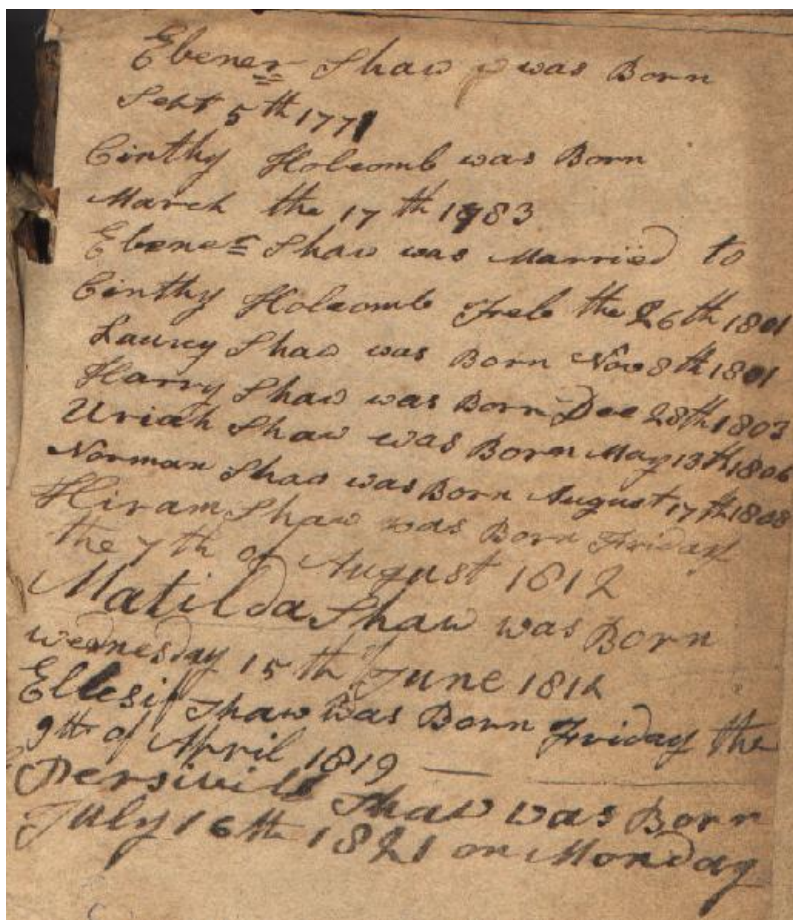 Ebener Shaw was Born
Sept 5th 1771
Cinthy Holcomb was Born
March the 17th 1783
Ebener Shaw was Married to
Cinthy Holcomb Feb the 26th 1801
Laurey Shaw was Born Nov 8th 1801
Harry Shaw was Born Dec 28th 1803
Uriah Shaw was Born May 13th 1806
Norman Shaw was Born August 17th 1808
Hiram Shaw was Born Friday
the 7th of August 1812
Matilda Shaw was Born
wednesday 15th of June 1814
Shaw was Born Friday the
9th of April 1819
Persivill Shaw was Born
July 16th 1821 on Monday